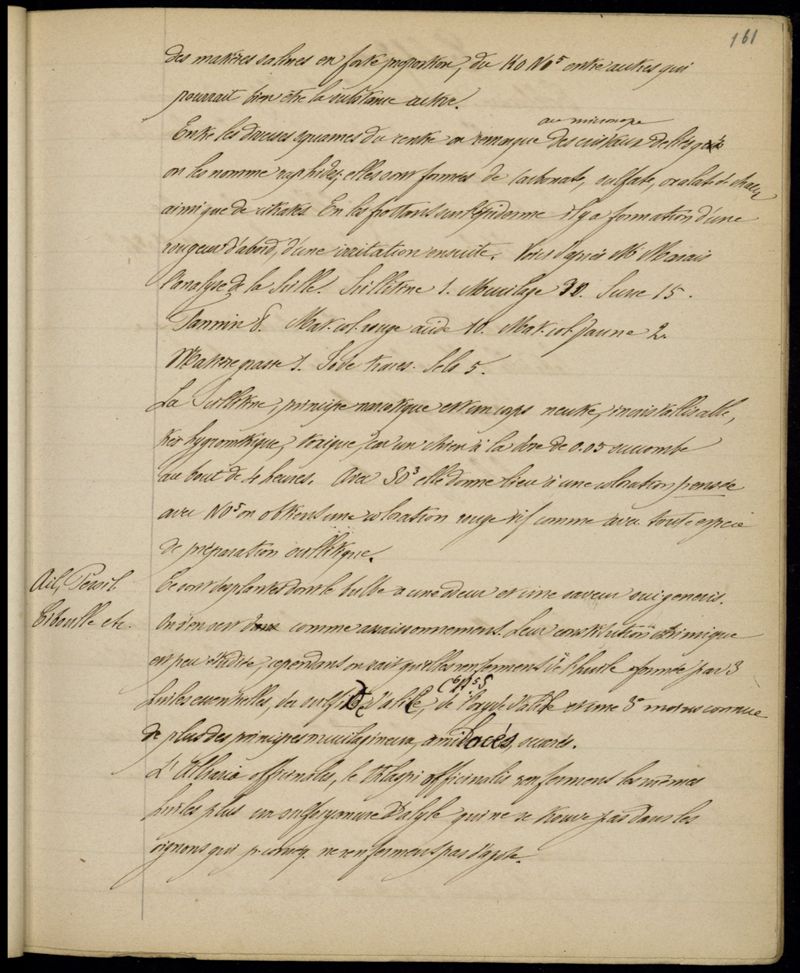 161
des matières salines en forte proportion, du KO NO⁵ entre autres qui
pourrait bien être la substance active.
au microscope
Entre les diverses squames du ventre on remarque des cristaux déliés
on les nomme raphides, elles sont formées de carbonate, sulfate, oxalate de chaux
ainsi que de citrates. En les frottant sur l'épiderme il y a formation d'une
rougeur d'abord, d'une irritation ensuite. Voici d'après Mr Marais
l'analyse de la Scille. Scillitine 1. Mucilage 30. Sucre 15.
Tannin 8. Mat. col. rouge acide 10. Mat. col. jaune 2.
Matière grasse 1. Iode traces. Sels 5.
La Scillitine, principe narcotique est un corps neutre, incristallisable,
très hygrométrique, toxique, car un chien à la dose de 0.05 succombe
au bout de 4 heures. Avec SO³ elle donne lieu à une coloration pensée
avec NO⁵ on obtient une coloration rouge vif comme avec toute espèce
de préparation scillitique.
Ail, Persil
Ciboulle etc.
Ce sont des plantes dont le bulbe a une odeur et une saveur sui generis.
On s'en sert comme assaisonnement. Leur constitution chimique
est peu étudiée, cependant on sait qu'elles renferment de l'huile formée par 3
C⁶H⁵S
huiles essentielles, du sulfure d'allyle, de l'oxyde d'allyle et une 3e moins connue
de plus des principes mucilagineux, amilacés, sucrés.
L'Alliaria officinalis, le thlaspi officinalis renferment les mêmes
huiles plus un sulfocyanure d'allyle qui ne se trouve pas dans les
oignons qui p. conseq. ne renferment pas d'azote.